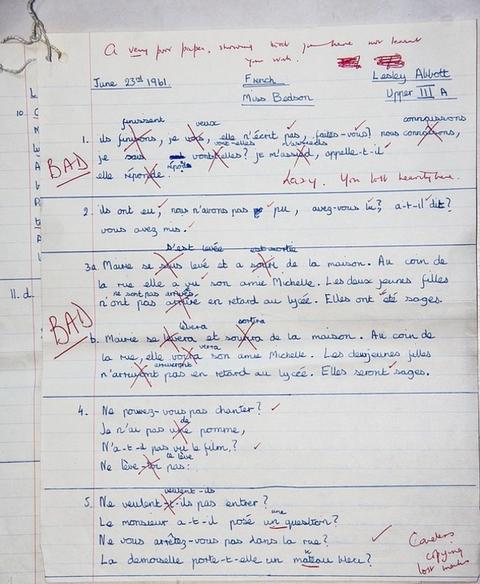 A very poor paper, showing that you have not learnt
your work.
June 23rd 1961. French Lesley Abbott
Miss Bedson Upper III A
finissent veux connaissons
1. ils finirons, je vois, elle n'écrit pas, faites-vous? nous connaîsons,
vont-elles m'assieds
je sais vont elles? je m'assied, appelle-t-il
BAD
répond
elle réponde. Lazy. You lost
2. ils ont eu, nous n'avons pas pu, avez-vous lu? a-t-il dit?
vous avez mus.
s'est levée est sortie
3a. Marie se sous levé et a souri de la maison. Au coin de
la rue elle a vu son amie Michelle. Les deux jeunes filles
ne sont pas arrivées
n'ont pas arrivé en retard au lycée. Elles ont été sages.
BAD
lèvera sortira
b. Marie se lèvera et sourira de la maison. Au coin de
verra
la rue, elle voira son amie Michelle. Les deux jeunes filles
arriveront
n'arriront pas en retard au lycée. Elles seront sages.
4. Ne pouvez-vous pas chanter?
de
Je n'ai pas une pomme,
N'a-t-il pas vu le film?
te lève
Ne lève-toi pas.
veulent-ils
5. Ne veulent-t-ils pas entrer?
une
Le monsieur a-t-il posé un question?
Ne vous arrêtez-vous pas dans la rue?
La demoiselle porte-t-elle un mateau bleu?
Careless
copying
lost marks
10.
11. d.